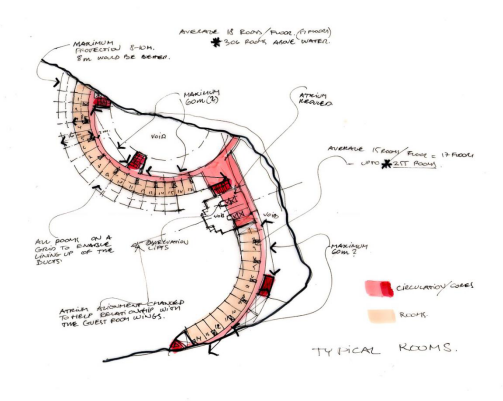 AVERAGE 18 ROOMS/FLOOR (17 FLOORS)
* 306 ROOMS ABOVE WATER.
MAXIMUM
PROJECTION 8-10M.
8m WOULD BE BETTER.
MAXIMUM
60m (?)
ATRIUM
REDUCED
VOID
AVERAGE 15 ROOMS/
FLOOR = 17 FLOORS
- UPTO * 255 ROOMS.
VOID
VOID
ALL ROOMS ON A
GRID TO ENABLE
LINING UP OF THE
DUCTS.
LIFTS
MAXIMUM
60m?
ATRIUM ALIGNMENT CHANGED
TO HELP RELATIONSHIP WITH
THE GUEST ROOM WINGS.
CIRCULATION/CORES
ROOMS.
TYPICAL ROOMS.